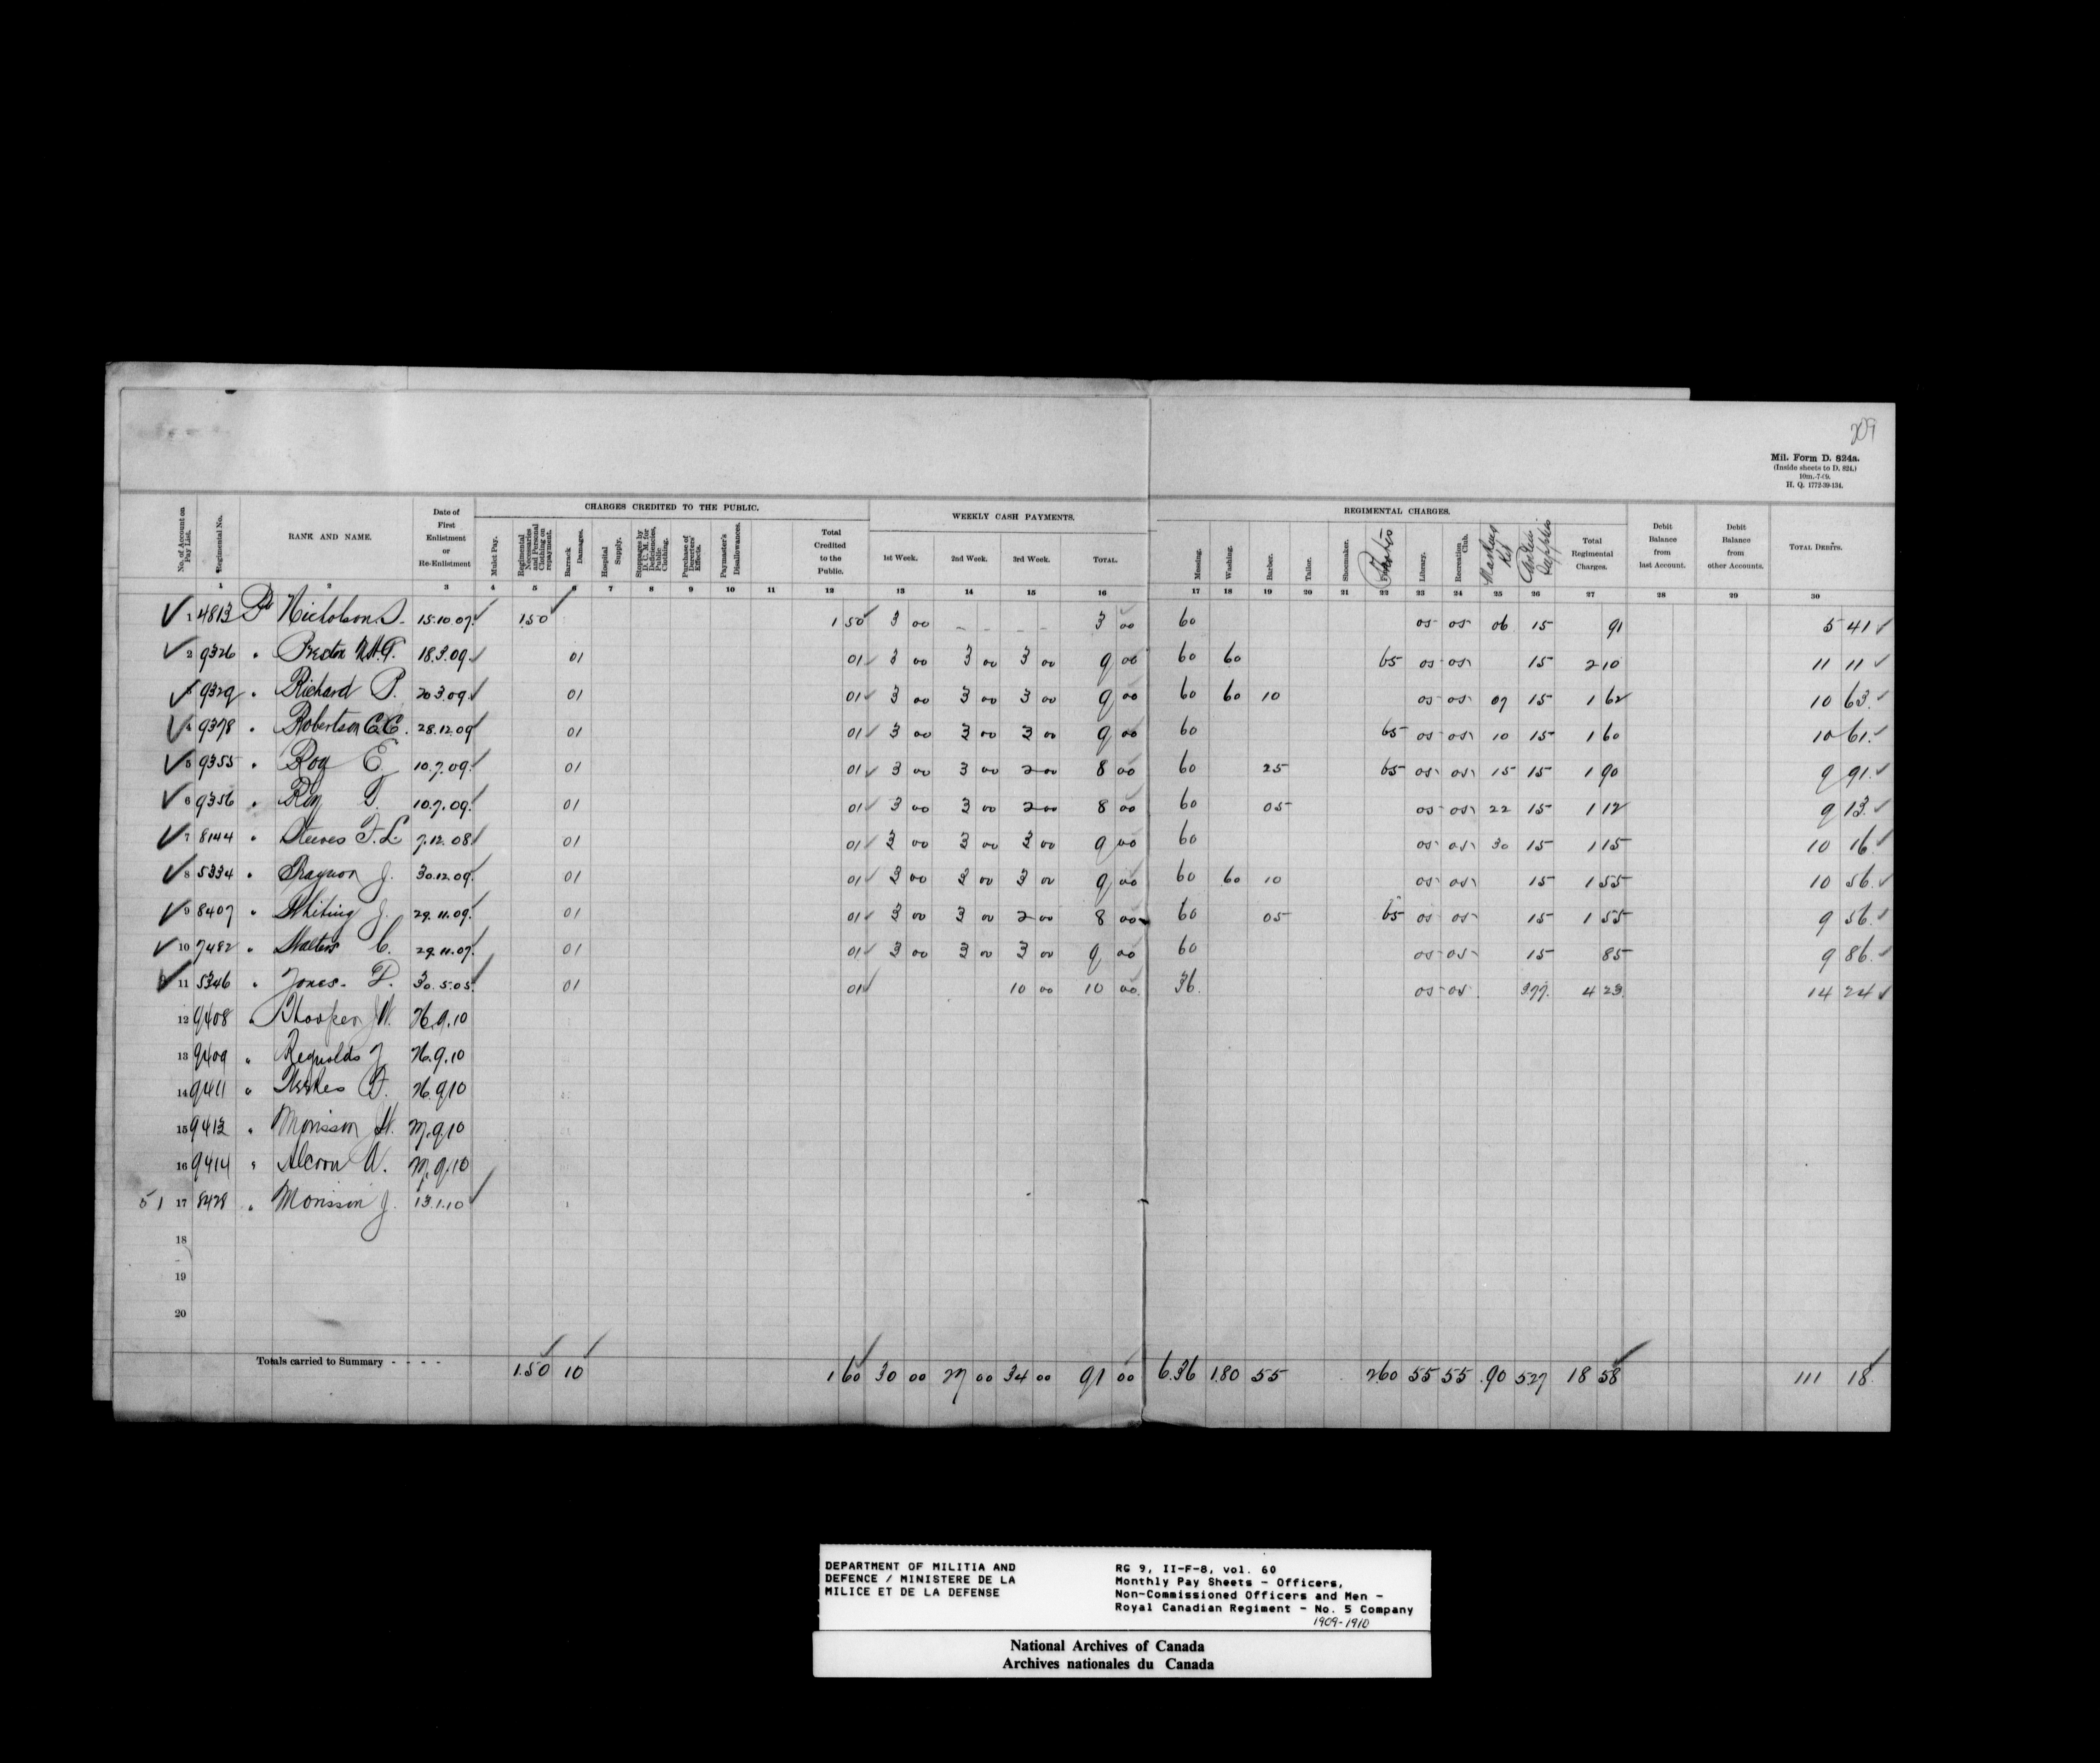 209
Mil. Form D. 824a.
(Inside sheets to D. 824.)
10m.-7-09.
H. Q. 1772-39-134.
CHARGES CREDITED TO THE PUBLIC. WEEKLY CASH PAYMENTS. REGIMENTAL CHARGES.
No. of Account on Pay List. Regimental No. RANK AND NAME. Date of First Enlistment or Re-Enlistment Mulct Pay. Regimental Necessaries and Personal Clothing on repayment. Barrack Damages. Hospital Supply. Stoppages by D. C. M. for Deficiencies, Public Clothing. Purchase of Deserters' Effects. Paymaster's Disallowances. Total Credited to the Public. 1st Week. 2nd Week. 3rd Week. TOTAL. Messing. Washing. Barber. Tailor. Shoemaker. Library. Recreation Club. Marking Kit Total Regimental Charges. Debit Balance from last Account. Debit Balance from other Accounts. TOTAL DEBITS.
1 2 3 4 5 6 7 8 9 10 11 12 13 14 15 16 17 18 19 20 21 22 23 24 25 26 27 28 29 30
1 4813 Pt Nicholson D. 15.10.07 1.50 1 50 3 00 - - - - 3 00 60 05 05 06 15 91 5 41
2 9326 " Preston 18.3.09 01 01 3 00 3 00 3 00 9 00 60 60 65 05 05 15 2 10 11 11
3 9329 " Richard P. 20.3.09 01 01 3 00 3 00 3 00 9 00 60 60 10 05 05 07 15 1 62 10 63
4 9378 " Robertson C.C. 28.12.09 01 01 3 00 3 00 3 00 9 00 60 65 05 05 10 15 1 60 10 61
5 9355 " Roy E. 10.7.09 01 01 3 00 3 00 2 00 8 00 60 25 65 05 05 15 15 1 90 9 91
6 9356 " Roy T. 10.7.09 01 01 3 00 3 00 2 00 8 00 60 05 05 05 22 15 1 12 9 13
7 8144 " Steeves F.L. 7.12.08 01 01 3 00 3 00 3 00 9 00 60 05 05 30 15 1 15 10 16
8 5334 " J. 30.12.09 01 01 3 00 3 00 3 00 9 00 60 60 10 05 05 15 1 55 10 56
9 8407 " Whiting J. 29.11.09 01 01 3 00 3 00 2 00 8 00 60 05 65 05 05 15 1 55 9 56
10 7482 " Walters C. 29.11.07 01 01 3 00 3 00 3 00 9 00 60 05 05 15 85 9 86
11 5346 " Jones. D. 30.5.05 01 01 10 00 10 00 36 05 05 3.77 4 23 14 24
12 9408 " Hooper W. 26.9.10
13 9409 " Reynolds J 26.9.10
14 9411 " F. 26.9.10
15 9413 " Morisson W. 27.9.10
16 9414 " Alcorn W. 27.9.10
51 17 8428 " Morisson J. 13.1.10
18
19
20
Totals carried to Summary - - - - 1.50 10 1 60 30 00 27 00 34 00 91 00 6.36 1.80 55 2.60 55 55 .90 5.27 18 58 111 18
DEPARTMENT OF MILITIA AND
DEFENCE / MINISTERE DE LA
MILICE ET DE LA DEFENSE
RG 9, II-F-8, vol. 60
Monthly Pay Sheets - Officers,
Non-Commissioned Officers and Men -
Royal Canadian Regiment - No. 5 Company
1909-1910
National Archives of Canada
Archives nationales du Canada